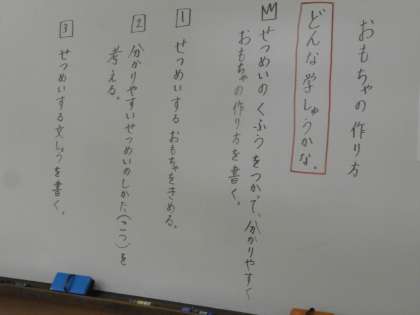 おもちゃの作り方
どんな学しゅうかな。
せつめいのくふうをつかって、分かりやすく
おもちゃの作り方を書く。
1 せつめいするおもちゃをきめる。
2 分かりやすいせつめいのしかた(こつ)を
考える。
3 せつめいする文しょうを書く。